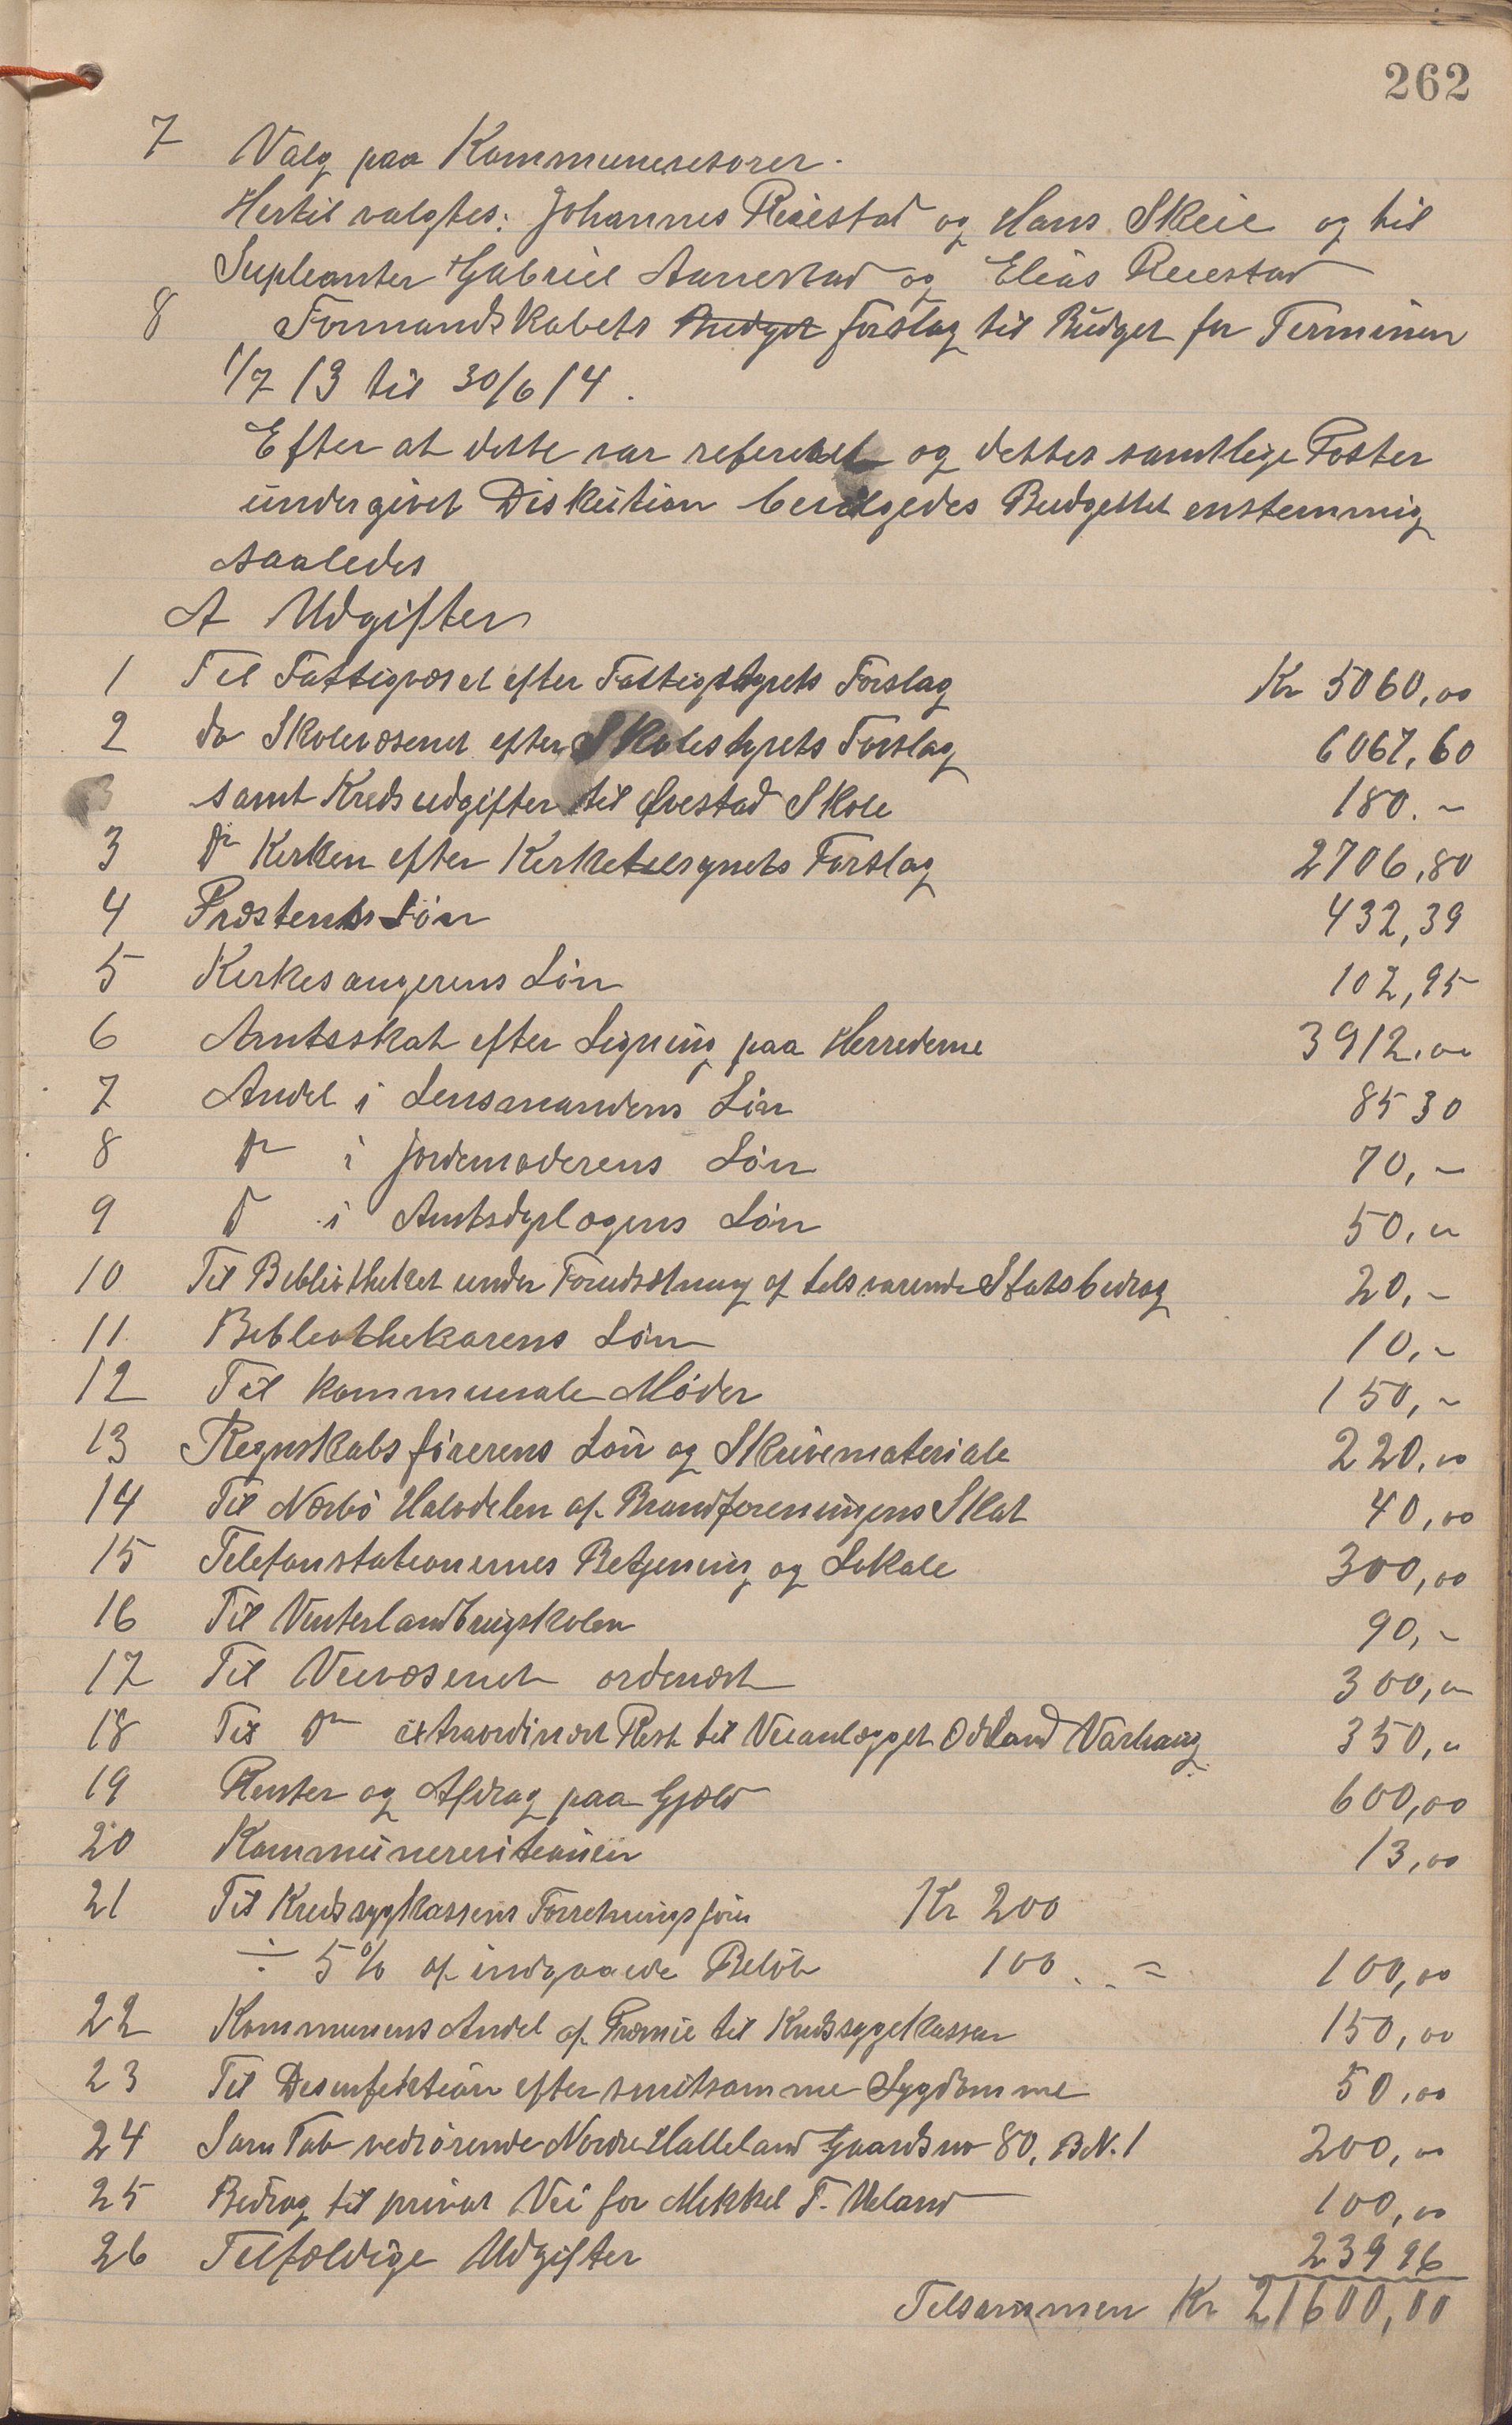 262
7 Valg paa Kommunerevisorer.
Hertil valgtes: Johannes Reiestad og Hans Skeie og til
Supleanter Gabriel Aanestad og Elias Reiestad
8 Formandskabets Budget forslag til Budget for Terminen
1/7 13 til 30/6 14.
Efter at dette var refereret og dettes samtlige Poster
undergivet Diskution bevilgedes Budgettet enstemmig
saaledes
A Udgifter
1 Til Fattigvæset efter Fattigstyrets Forslag Kr 5060,00
2 do Skolevæsenet efter Skolestyrets Forslag 6067,60
samt Kredsudgifter til Øvestad Skole 180.-
3 Do Kirken efter Kirketilsynets Forslag 2706,80
4 Præstens Løn 432,39
5 Kirkesangerens Løn 102,95
6 Amtsskat efter Ligning paa Herrederne 3912,00
7 Andel i Lensmandens Løn 85 30
8 Do i Jordemoderens Løn 70,-
9 Do i Amtsdyrlægens Løn 50,00
10 Til Bibliotheket under Forudsætning af tilsvarende Statsbidrag 20,-
11 Bibliothekarens Løn 10,-
12 Til kommunale Møder 150,-
13 Regnskabsførerens Løn og Skrivemateriale 220,00
14 Til Nærbø Halvdelen af Brandforeningens Skat 40,00
15 Telefonstationernes Betjening og Lokale 300,00
16 Til Vinterlandbrugskolen 90,-
17 Til Veivæsenet ordinært 300,00
18 Til Do extraordinært Rest til Veianlægget Odland Varhaug 350,00
19 Renter og Afdrag paa Gjæld 600,00
20 Kommunerevisionen 13,00
21 Til Kredssygkassens Forretningsfører Kr 200
÷ 5% af indgaaede Beløb 100.. = 100,00
22 Kommunens Andel af Præmie til Kredssygekassen 150,00
23 Til Desinfektion efter smitsomme Sygdomme 50,00
24 Som Tab vedrørende Nordre Halleland Gaardsno 80, B.N. 1 200,00
25 Bidrag til privat Vei for Mikkel T. Ueland 100,00
26 Tilfældige Udgifter 239 96
Tilsammen Kr 21600,00